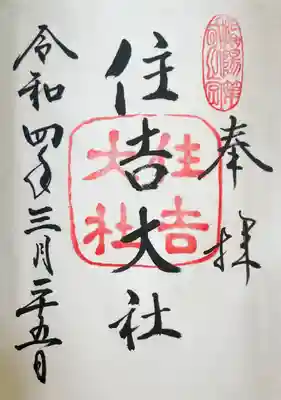 奉拝
住吉大社
住吉大社
令和四年三月二十五日